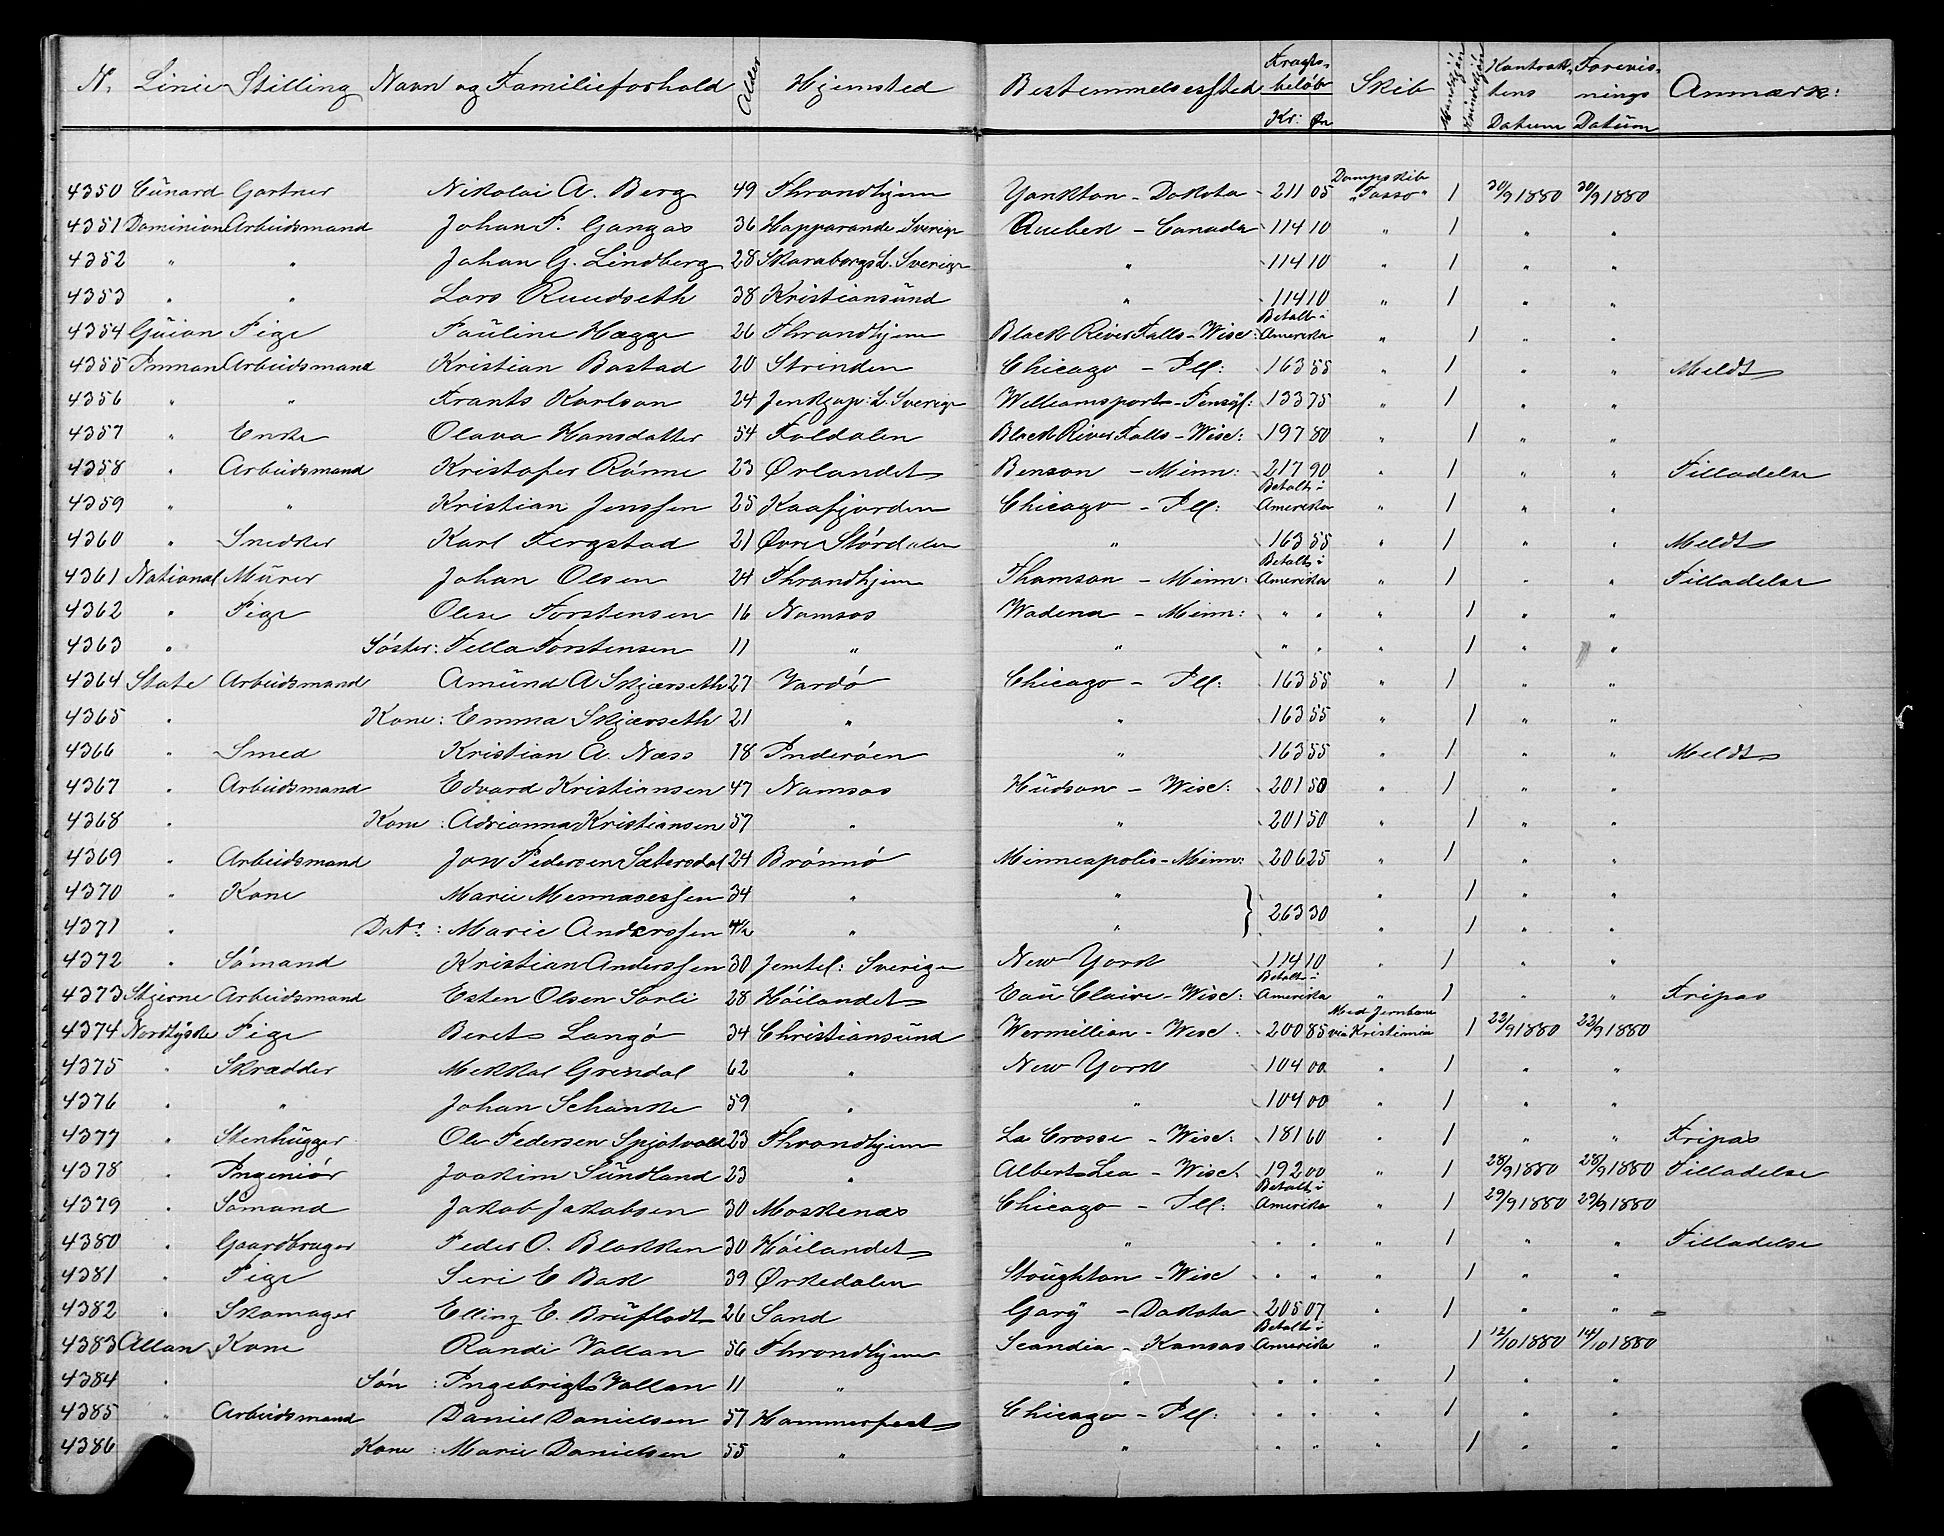 N. Linie Stilling Navn og Familieforhold Alder Hjemsted Bestemmelsessted Fragtbeløb Kr: Øre Skib Mandkjön Kvindekjön Kontraktens Datum Forevisnings Datum Anmærk:
4350 Cunard Gartner Nikolai A. Berg 49 Throndhjem Yankton - Dakota 211 05 Dampskib "Tasso" 1 30/9 1880 30/9 1880
4351 Dominion Arbeidsmand Johan P. Gangas 36 Happaranda Sverige Quebek - Canada 114 10 " 1 " "
4352 " " Johan G. Lindberg 28 Skaraborgs L. Sverige " 114 10 " 1 " "
4353 " " Lars Ruudseth 38 Kristiansund " 114 10 " 1 " "
4354 Guion Pige Pauline Hægge 26 Throndhjem Black River Falls - Wisc: Betalt i Amerika " 1 " "
4355 Inman Arbeidsmand Kristian Bastad 20 Strinden Chicago - Ill: 163 55 " 1 " " Meldt
4356 " " Frants Karlson 24 Jenkjøp: L. Sverige Williamsport - Pensyl: 133 75 " 1 " "
4357 " Enke Olava Hansdatter 54 Foldalen Black River Falls - Wisc: 197 80 " 1 " "
4358 " Arbeidsmand Kristofer Rönne 23 Ørlandet Benson - Minn: 217 90 " 1 " " Tilladelse
4359 " " Kristian Jenssen 25 Kaafjorden Chicago - Ill: Betalt i Amerika " 1 " "
4360 " Snedker Karl Fergstad 21 Øvre Stördalen " 163 55 " 1 " " Meldt
4361 National Murer Johan Olsen 24 Throndhjem Thomson - Minn: Betalt i Amerika " 1 " " Tilladelse
4362 " Pige Olese Torstensen 16 Namsos Wadena - Minn: " " " 1 " "
4363 " Söster: Pella Torstensen 11 " " " " " 1 " "
4364 State Arbeidsmand Amund A Skjærseth 27 Vardö Chicago - Ill: 163 55 " 1 " "
4365 " Kone: Emma Skjærseth 21 " " 163 55 " 1 " "
4366 " Smed Kristian A. Næss 18 Inderöen " 163 55 " 1 " " Meldt
4367 " Arbeidsmand Edvard Kristiansen 47 Namsos Hudson - Wisc: 201 50 " 1 " "
4368 " Kone: Adrianna Kristiansen 57 " " 201 50 " 1 " "
4369 " Arbeidsmand Jon Pedersen Sætersdal 24 Brönnö Minneapolis - Minn: 206 25 " 1 " "
4370 " Kone Marie Mennasessen 34 " " } " 1 " "
4371 " Datr: Marie Anderssen 4/12 " " } 263 30 " 1 " "
4372 " Sömand Kristian Anderssen 30 Jemtel: Sverige New York 114 10 " 1 " "
4373 Stjerne Arbeidsmand Esten Olsen Sørli 28 Höilandet Eau Claire - Wisc: Betalt i Amerika " 1 " " Fripas
4374 Nordtyske Pige Beret Langö 34 Christiansund Wermillian - Wisc: 200 85 Med Jernbane via Kristiania 1 23/9 1880 23/9 1880
4375 " Skrædder Mekkal Grendal 62 " New York 104 00 " 1 " "
4376 " " Johan Schanke 59 " " 104 00 " 1 " "
4377 " Stenhugger Ole Pedersen Spjotvold 23 Throndhjem La Crosse - Wisc: 181 60 " 1 " " Fripas
4378 " Ingeniör Joakim Sundland 23 " Albert Lea - Wisc: 192 00 " 1 28/9 1880 28/9 1880 Tilladelse
4379 " Sömand Jakob Jakobsen 30 Moskenæs Chicago - Ill: Betalt i Amerika " 1 29/9 1880 29/9 1880
4380 " Gaardbruger Peder O. Blakken 30 Höilandet " " " " 1 " " Tilladelse
4381 " Pige Seri E Bak 39 Ørkedalen Stoughton - Wisc " " " 1 " "
4382 " Skomager Elling E. Bruflodt 26 Sand Gary - Dakota 205 07 " 1 " "
4383 Allan Kone Randi Vollan 56 Throndhjem Scandia - Kansas Betalt i Amerika " 1 12/10 1880 14/10 1880
4384 " Sön: Ingebrigt Vollan 11 " " " " " 1 " "
4385 " Arbeidsmand Daniel Danielsen 57 Hammerfest Chicago - Ill: " " " 1 " "
4386 Kone: Marie Danielsen 55 " " " " " 1 " "